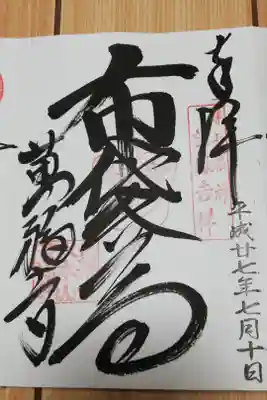 奉拝
平成廿七年七月十日
布袋尊
萬福寺